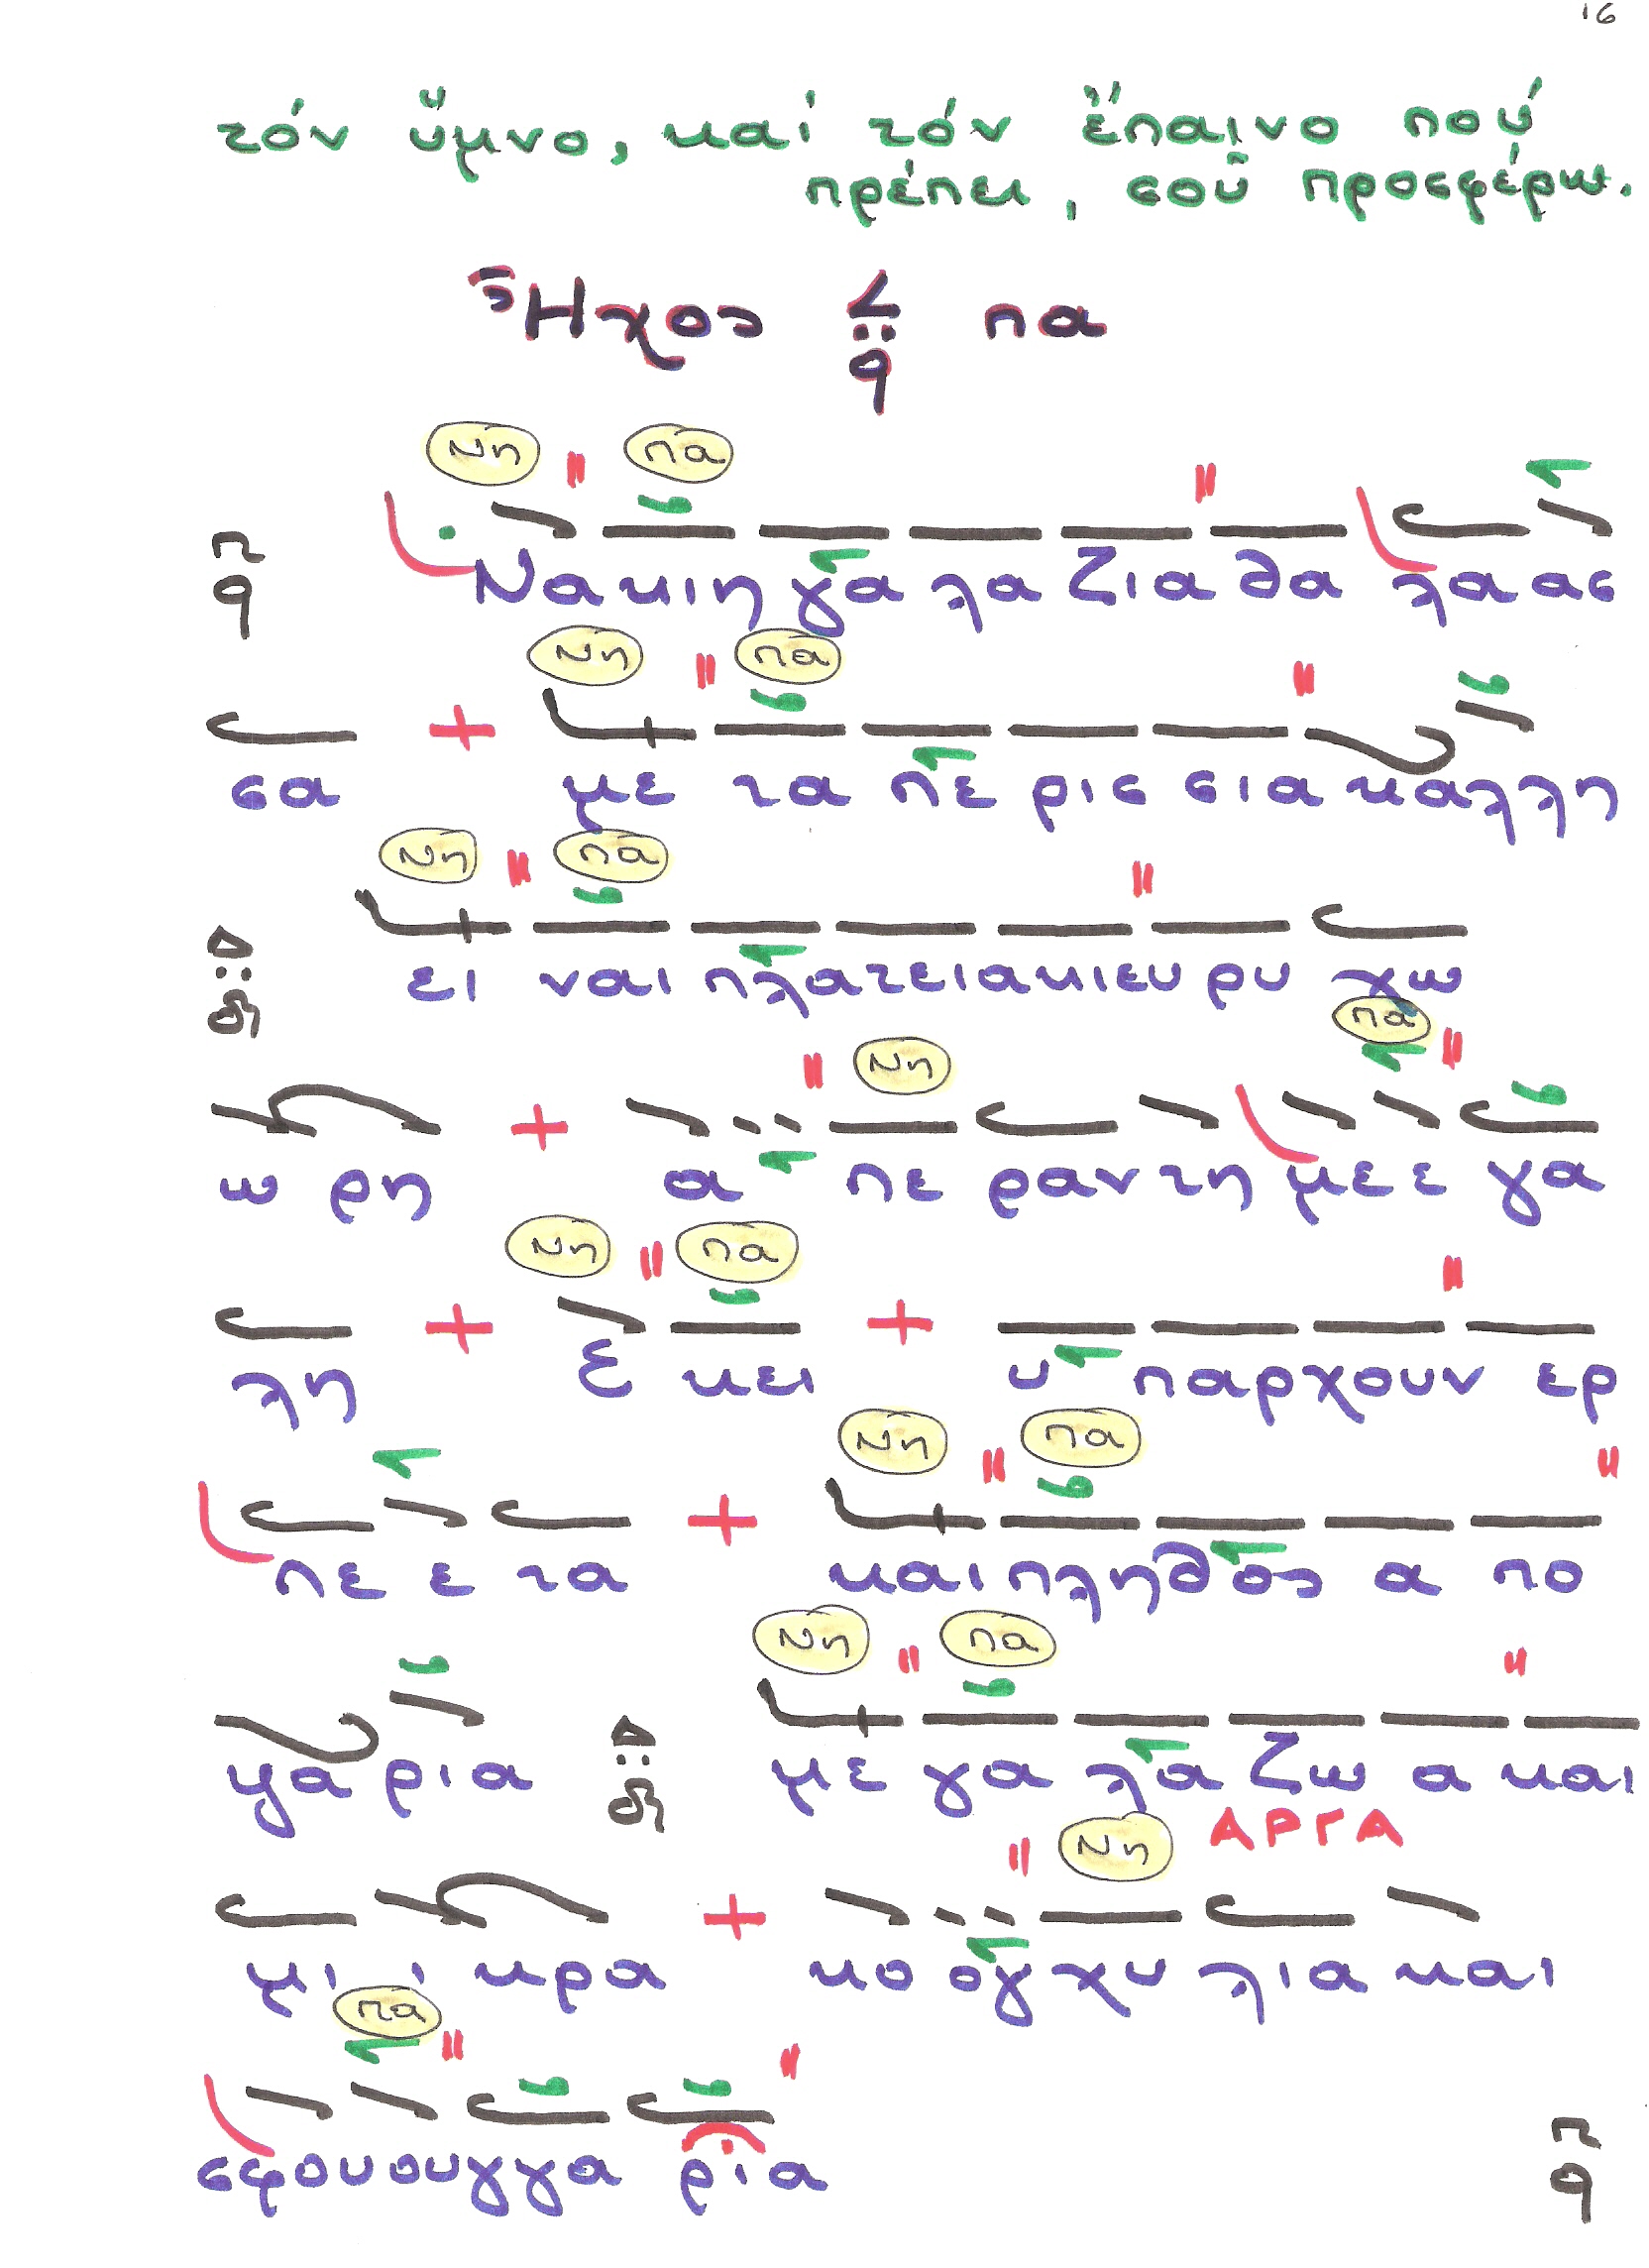 16
τόν ὕμνο, καί τόν ἔπαινο πού
πρέπει, σοῦ προσφέρω.
Ἦχος πα
Νη πα
Να κι η γα λα ζια θα λα ας
Νη πα
σα με τα πε ρισ σια κα λλη
Νη πα
ει ναι πλα τεια κι ευ ρυ χω
Νη πα
ω ρη α πε ραν τη με ε γα
Νη πα
λη Ε κει υ παρ χουν ερ
Νη πα
πε ε τα και πλη θος α πο
Νη πα
ψα ρια με γα λα ζω α και
Νη ΑΡΓΑ
μι ι κρα κο ογ χυ λια και
πα
σφου ουγ γα ρια